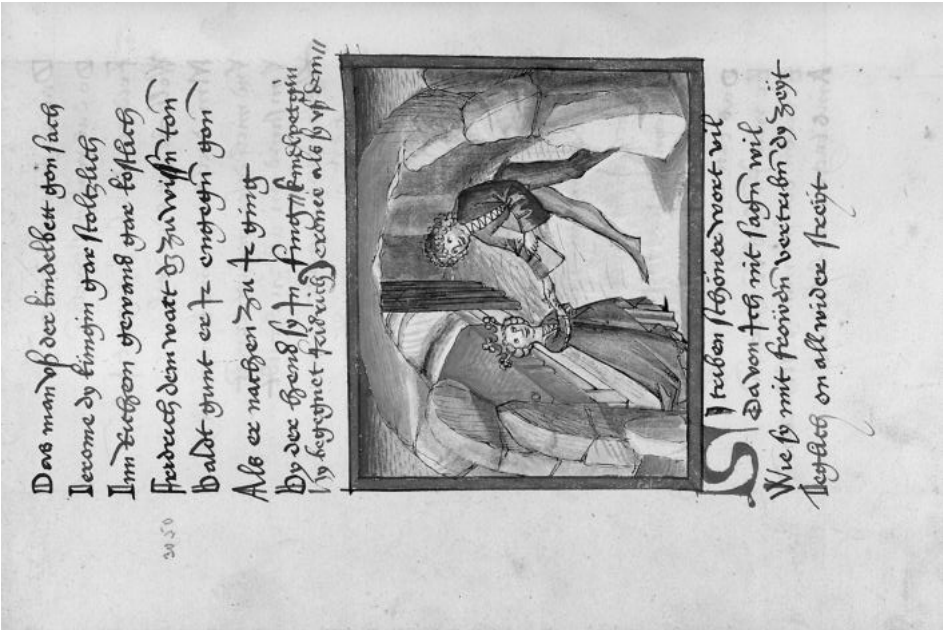 Das man vß der kindelbett gon sach
Jerome dy küngin gar stoltzlich
Inn richem gewand gar kostlich
Fridrich dem wart dz zu wissen ton
3050
baldt gunt er ir engegen gon
Als er nachen zu ir ging
By der hend sy in fing // kindlbet gin
hy begegnet Fridrich Jerome als sy vß dem //
Si truben schöner wort vil
Da von ich nit sagen wil
Wie sy mit freiden vertriben dy zeyt
Teglich on all wider streyt